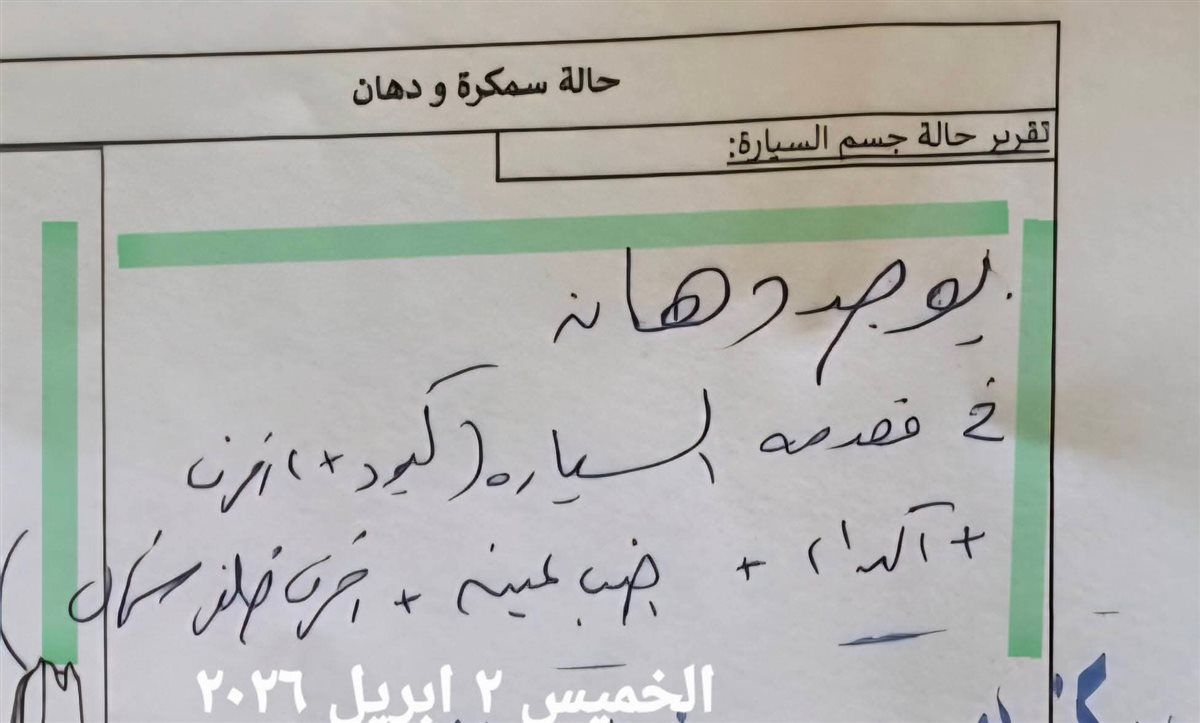 حالة سمكرة و دهان
تقرير حالة جسم السيارة:
يوجد دهان
في مقدمه السياره (كبود +
+ + جنب يمينه + خلفي شمال)
الخميس ٢ ابريل ٢٠٢٦